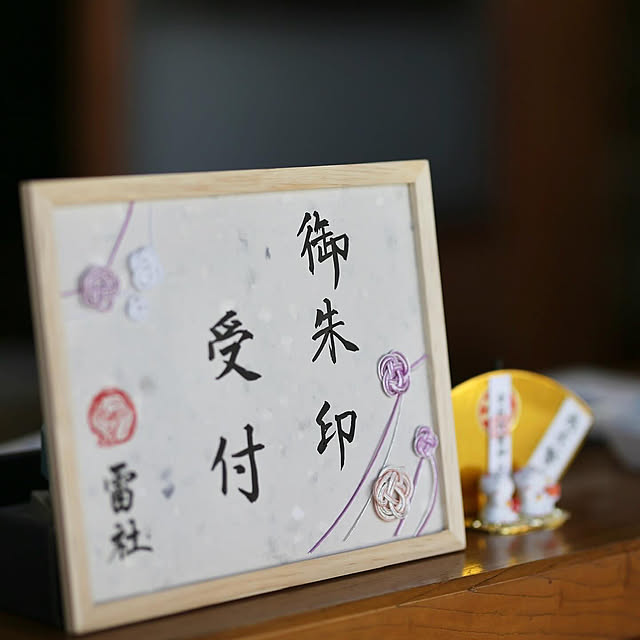 御朱印
受付
雷社